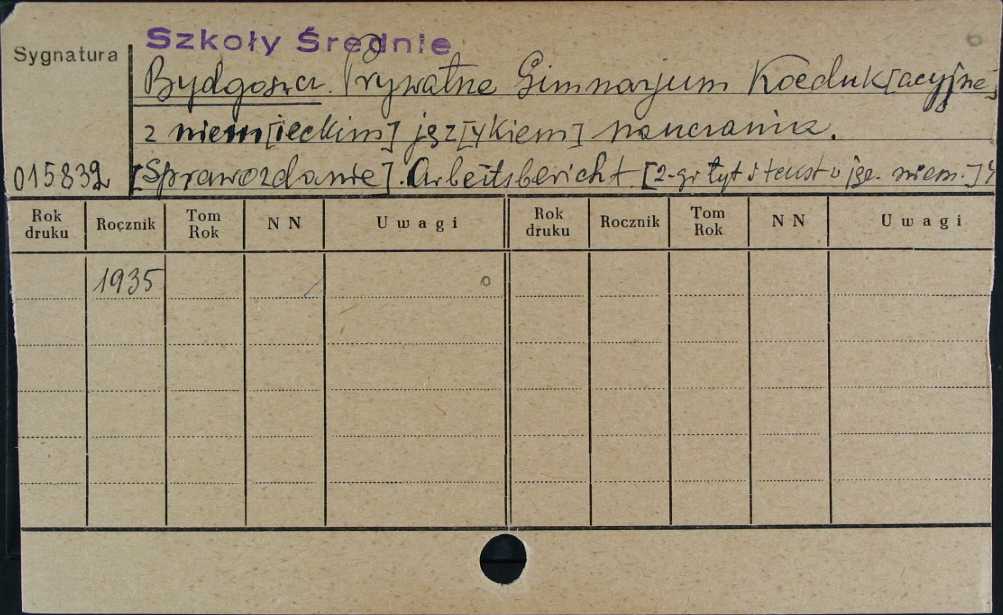 Szkoły Średnie
Sygnatura
Bydgoszcz. Prywatne Gimnazjum Koeduk[acyjne]
z niem[ieckim] jęz[ykiem] nauczania.
015832 [Sprawozdanie]. Arbeitsbericht [2-gi tyt i tekst w ję. niem.]
Rok druku Rocznik Tom Rok N N Uwagi Rok druku Rocznik Tom Rok N N Uwagi
1935